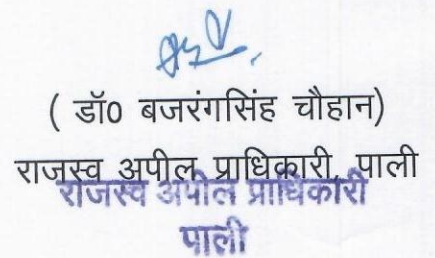 ( डॉ0 बजरंगसिंह चौहान)
राजस्व अपील प्राधिकारी, पाली
राजस्व अपील प्राधिकारी
पाली